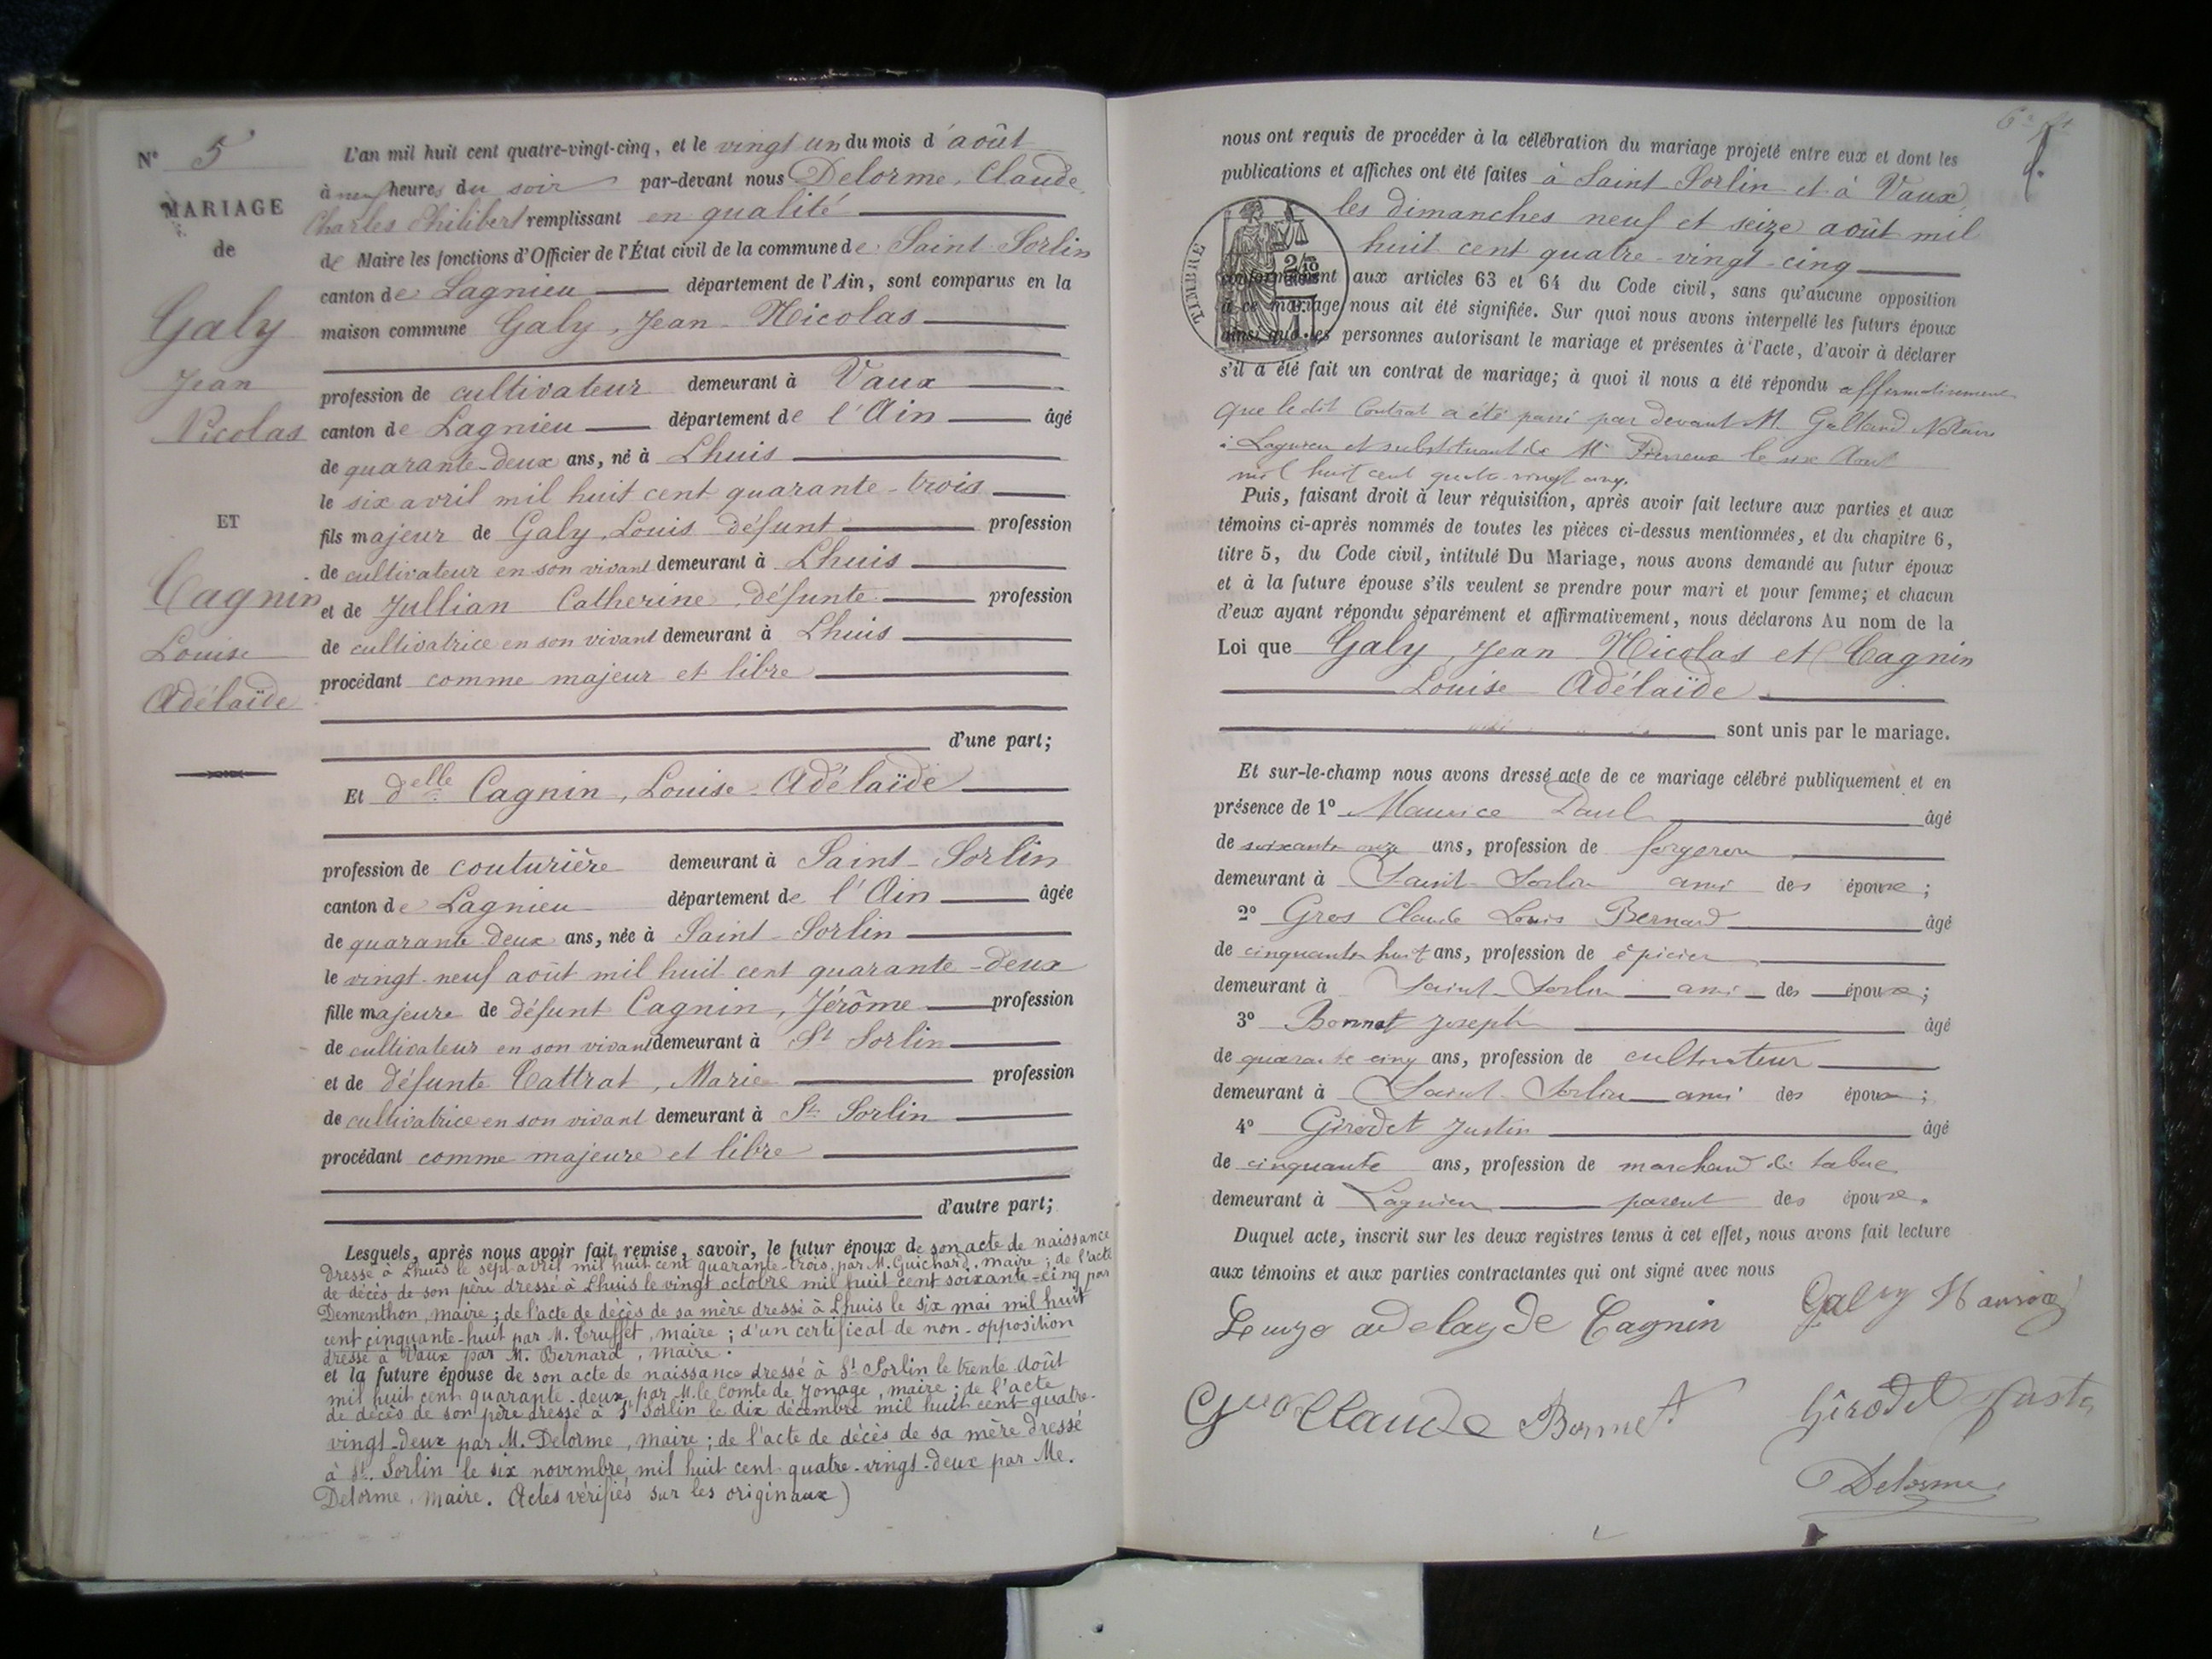 N° 5
MARIAGE
de
Galy
Jean
Nicolas
ET
Cagnin
Louise
Adélaïde
L'an mil huit cent quatre-vingt-cinq, et le vingt un du mois d'août
à neuf heures du soir par-devant nous Delorme, Claude
Charles Philibert remplissant en qualité
de Maire les fonctions d'Officier de l'État civil de la commune de Saint-Sorlin
canton de Lagnieu département de l'Ain, sont comparus en la
maison commune Galy, Jean-Nicolas
profession de cultivateur demeurant à Vaux
canton de Lagnieu département de l'Ain âgé
de quarante-deux ans, né à Lhuis
le six avril mil huit cent quarante-trois
fils majeur de Galy, Louis défunt profession
de cultivateur en son vivant demeurant à Lhuis
et de Jullian Catherine, défunte profession
de cultivatrice en son vivant demeurant à Lhuis
procédant comme majeur et libre
d'une part;
Et delle Cagnin, Louise-Adélaïde
profession de couturière demeurant à Saint-Sorlin
canton de Lagnieu département de l'Ain âgée
de quarante deux ans, née à Saint-Sorlin
le vingt-neuf août mil huit cent quarante-deux
fille majeure de défunt Cagnin, Jérôme profession
de cultivateur en son vivant demeurant à St Sorlin
et de défunte Cattrat, Marie profession
de cultivatrice en son vivant demeurant à St Sorlin
procédant comme majeure et libre
d'autre part;
Lesquels, après nous avoir fait remise, savoir, le futur époux de son acte de naissance
dressé à Lhuis le sept avril mil huit cent quarante-trois, par M. Guichard, maire; de l'acte
de décès de son père dressé à Lhuis le vingt octobre mil huit cent soixante-cinq par
Dementhon, maire; de l'acte de décès de sa mère dressé à Lhuis le six mai mil huit
cent cinquante-huit par M. Truffet, maire; d'un certificat de non-opposition
dressé à Vaux par M. Bernard, maire.
et la future épouse de son acte de naissance dressé à St Sorlin le trente août
mil huit cent quarante-deux, par M. le Comte de Jonage, maire; de l'acte
de décès de son père dressé à St Sorlin le dix décembre mil huit cent quatre-
vingt-deux par M. Delorme, maire; de l'acte de décès de sa mère dressé
à St. Sorlin le six novembre mil huit cent quatre-vingt-deux par Me.
Delorme, maire. Actes vérifiés sur les originaux)
nous ont requis de procéder à la célébration du mariage projeté entre eux et dont les
publications et affiches ont été faites à Saint-Sorlin et à Vaux
les dimanches neuf et seize août mil
huit cent quatre-vingt-cinq
TIMBRE
conformément aux articles 63 et 64 du Code civil, sans qu'aucune opposition
à ce mariage nous ait été signifiée. Sur quoi nous avons interpellé les futurs époux
ainsi que les personnes autorisant le mariage et présentes à l'acte, d'avoir à déclarer
s'il a été fait un contrat de mariage; à quoi il nous a été répondu affirmativement
que le dit Contrat a été passé par devant M. Galland Notaire
à Lagnieu et substituant de Me le six Août
mil huit cent quatre-vingt cinq.
Puis, faisant droit à leur réquisition, après avoir fait lecture aux parties et aux
témoins ci-après nommés de toutes les pièces ci-dessus mentionnées, et du chapitre 6,
titre 5, du Code civil, intitulé Du Mariage, nous avons demandé au futur époux
et à la future épouse s'ils veulent se prendre pour mari et pour femme; et chacun
d'eux ayant répondu séparément et affirmativement, nous déclarons Au nom de la
Loi que Galy, Jean Nicolas et Cagnin
Louise Adélaïde
sont unis par le mariage.
Et sur-le-champ nous avons dressé acte de ce mariage célébré publiquement et en
présence de 1° Maurice Paul âgé
de soixante onze ans, profession de forgeron
demeurant à Saint-Sorlin ami des époux;
2° Gros Claude Louis Bernard âgé
de cinquante huit ans, profession de épicier
demeurant à Saint-Sorlin ami des époux;
3° Bonnet Joseph âgé
de quarante cinq ans, profession de cultivateur
demeurant à Saint-Sorlin ami des époux;
4° Girodet Justin âgé
de cinquante ans, profession de marchand de tabac
demeurant à Lagnieu parent des époux.
Duquel acte, inscrit sur les deux registres tenus à cet effet, nous avons fait lecture
aux témoins et aux parties contractantes qui ont signé avec nous
Galy
Louyse adelayde Cagnin
Gros Claude Bonnet Girodet
Delorme